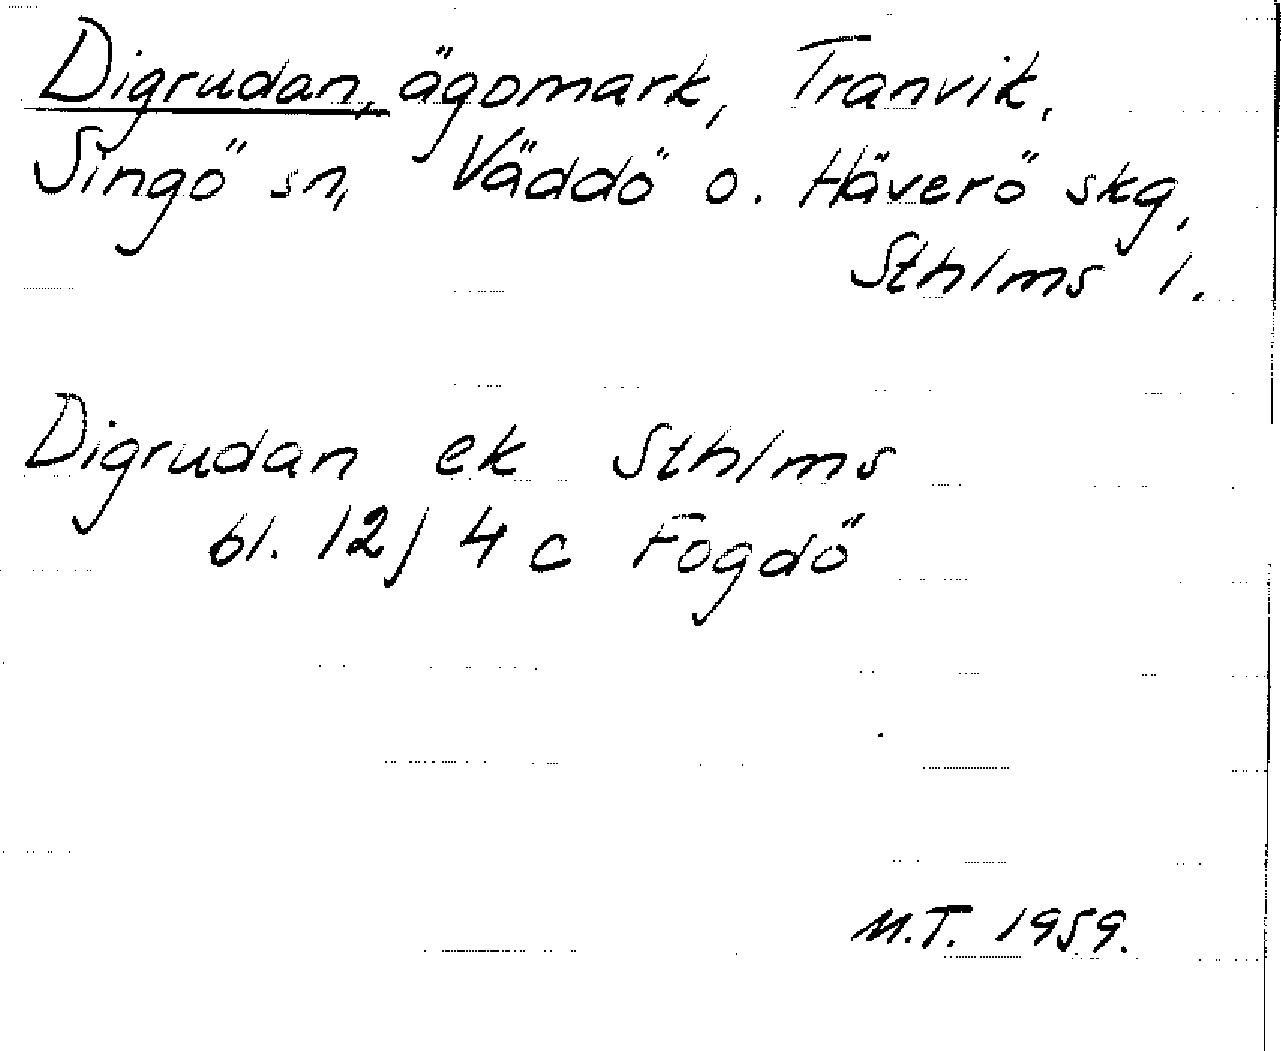 Digrudan, ägomark, Tranvik,
Singö sn, Väddö o. Häverö skg,
Sthlms l.
Digrudan ek Sthlms
bl. 12 / 4 c Fogdö
M.T. 1959.